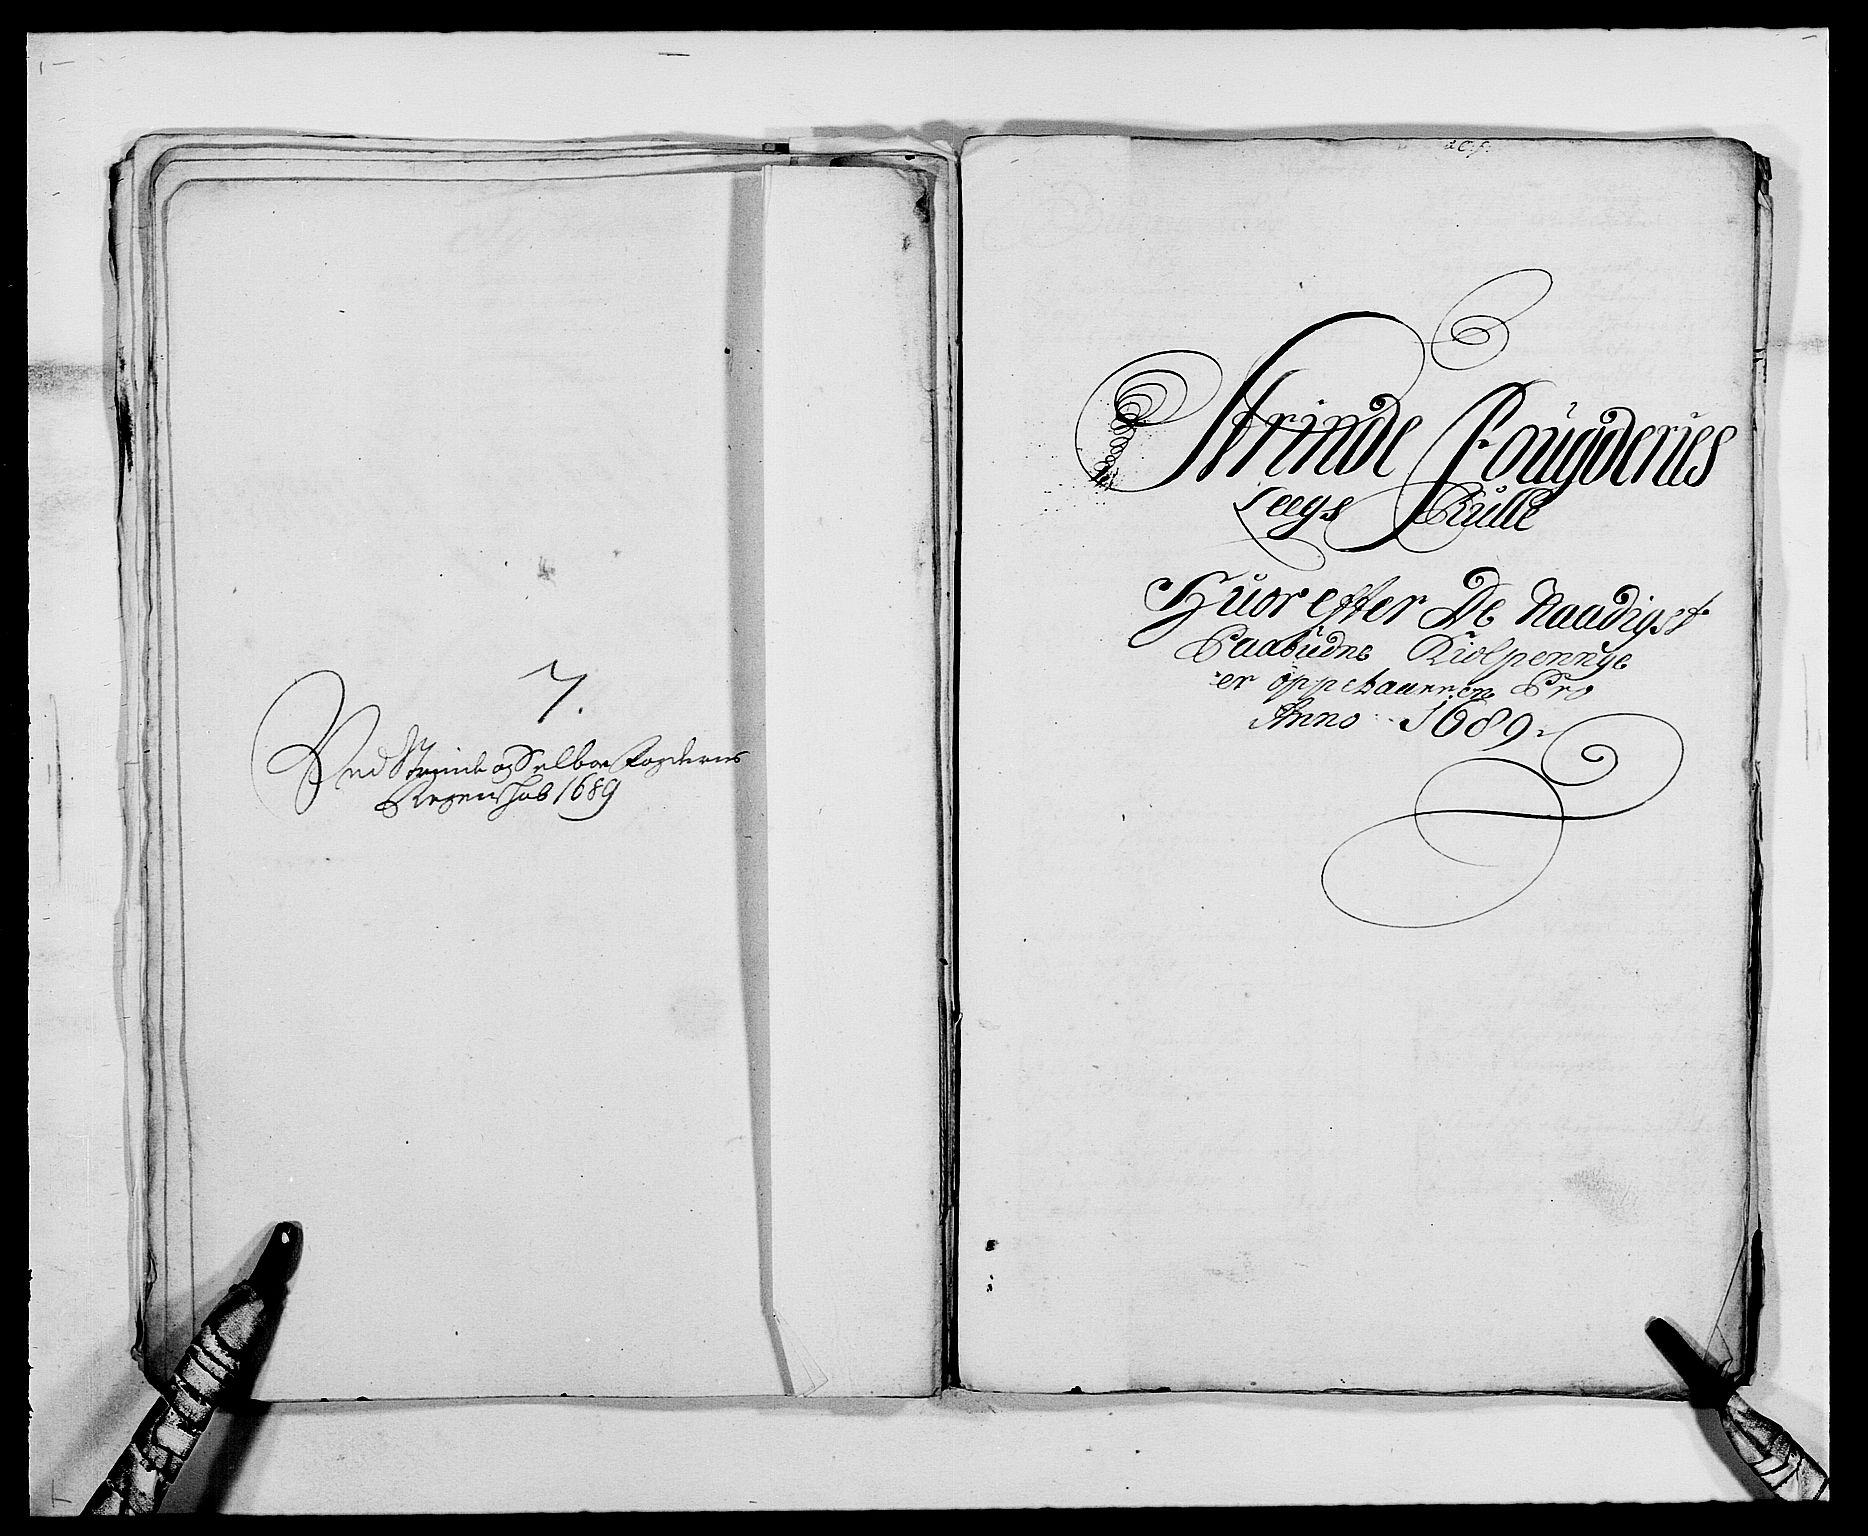 7.
Ved Strinde og Selboe Fogderies
Regenschab 1689
Strinde Fougderies
Legs Rulle
Huor effter De Naadigst
Paabudne Kiolpennge
er oppebaarren Pro
Anno 1689.